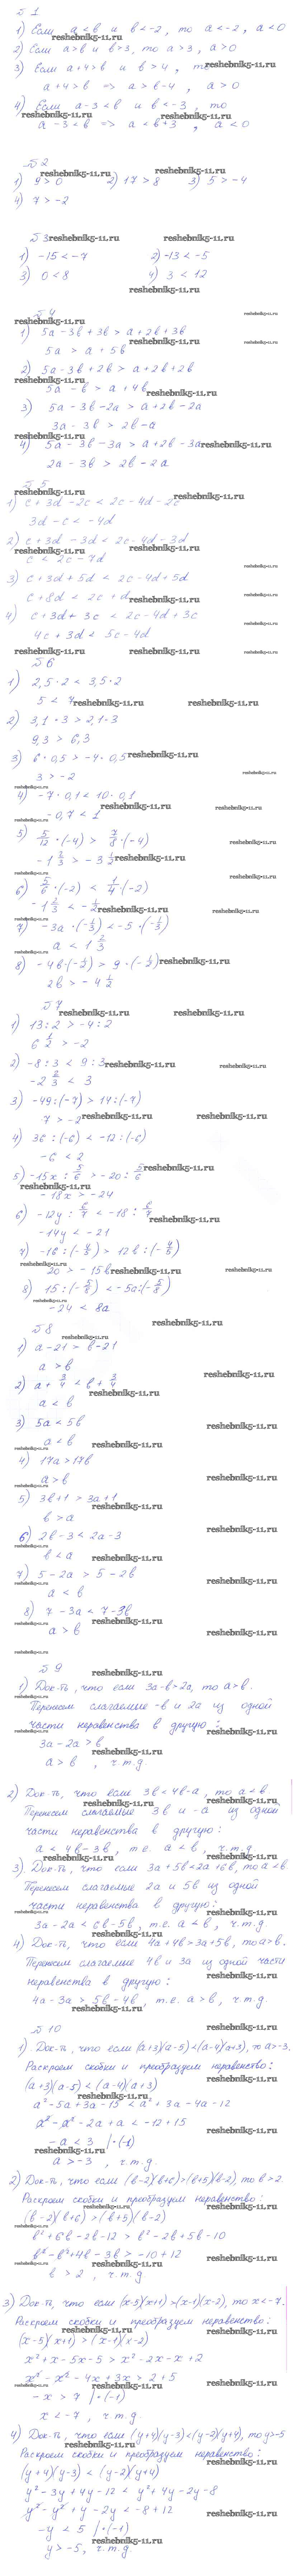 № 1
1) Если a < b и b < -2, то a < -2, a < 0
2) Если a > b и b > 3, то a > 3, a > 0
3) Если a + 4 > b и b > 4, то
a + 4 > b => a > b - 4, a > 0
4) Если a - 3 < b и b < -3, то
a - 3 < b => a < b + 3, a < 0
№ 2
1) 9 > 0 2) 17 > 8 3) 5 > -4
4) 7 > -2
№ 3
1) -15 < -7 2) -13 < -5
3) 0 < 8 4) 3 < 12
№ 4
1) 5a - 3b + 3b > a + 2b + 3b
5a > a + 5b
2) 5a - 3b + 2b > a + 2b + 2b
5a - b > a + 4b
3) 5a - 3b - 2a > a + 2b - 2a
3a - 3b > 2b - a
4) 5a - 3b - 3a > a + 2b - 3a
2a - 3b > 2b - 2a
№ 5
1) c + 3d - 2c < 2c - 4d - 2c
3d - c < -4d
2) c + 3d - 3d < 2c - 4d - 3d
c < 2c - 7d
3) c + 3d + 5d < 2c - 4d + 5d
c + 8d < 2c + d
4) c + 3d + 3c < 2c - 4d + 3c
4c + 3d < 5c - 4d
№ 6
1) 2,5 · 2 < 3,5 · 2
5 < 7
2) 3,1 · 3 > 2,1 · 3
9,3 > 6,3
3) 6 · 0,5 > -4 · 0,5
3 > -2
4) -7 · 0,1 < 10 · 0,1
-0,7 < 1
5) 5/12 · (-4) > 7/8 · (-4)
-1 2/3 > -3 1/2
6) 5/6 · (-2) < 1/4 · (-2)
-1 2/3 < -1/2
7) -3a · (-1/3) < -5 · (-1/3)
a < 1 2/3
8) -4b · (-1/2) > 9 · (-1/2)
2b > -4 1/2
№ 7
1) 13 : 2 > -4 : 2
6 1/2 > -2
2) -8 : 3 < 9 : 3
-2 2/3 < 3
3) -49 : (-7) > 14 : (-7)
7 > -2
4) 36 : (-6) < -12 : (-6)
-6 < 2
5) -15x : 5/6 > -20 : 5/6
-18x > -24
6) -12y : 6/7 < -18 : 6/7
-14y < -21
7) -16 : (-4/5) > 12b : (-4/5)
20 > -15b
8) 15 : (-5/8) < -5a : (-5/8)
-24 < 8a
№ 8
1) a - 21 > b - 21
a > b
2) a + 3/4 < b + 3/4
a < b
3) 5a < 5b
a < b
4) 17a > 17b
a > b
5) 3b + 1 > 3a + 1
b > a
6) 2b - 3 < 2a - 3
b < a
7) 5 - 2a > 5 - 2b
a < b
8) 7 - 3a < 7 - 3b
a > b
№ 9
1) Док-ть, что если 3a - b > 2a, то a > b.
Перенесем слагаемые -b и 2a из одной
части неравенства в другую:
3a - 2a > b
a > b, ч.т.д.
2) Док-ть, что если 3b < 4b - a, то a < b
Перенесем слагаемые 3b и -a из одной
части неравенства в другую:
a < 4b - 3b, т.е. a < b, ч.т.д.
3) Док-ть, что если 3a + 5b < 2a + 6b, то a < b.
Перенесем слагаемые 2a и 5b из одной
части неравенства в другую:
3a - 2a < 6b - 5b, т.е. a < b, ч.т.д.
4) Док-ть, что если 4a + 4b > 3a + 5b, то a > b.
Перенесем слагаемые 4b и 3a из одной части
неравенства в другую:
4a - 3a > 5b - 4b, т.е. a > b, ч.т.д.
№ 10
1) Док-ть, что если (a+3)(a-5) < (a-4)(a+3), то a > -3.
Раскроем скобки и преобразуем неравенство:
(a+3)(a-5) < (a-4)(a+3)
a² - 5a + 3a - 15 < a² + 3a - 4a - 12
a² - a² - 2a + a < -12 + 15
-a < 3 | · (-1)
a > -3, ч.т.д.
2) Док-ть, что если (b-2)(b+6) > (b+5)(b-2), то b > 2.
Раскроем скобки и преобразуем неравенство:
(b-2)(b+6) > (b+5)(b-2)
b² + 6b - 2b - 12 > b² - 2b + 5b - 10
b² - b² + 4b - 3b > -10 + 12
b > 2, ч.т.д.
3) Док-ть, что если (x-5)(x+1) > (x-1)(x-2), то x < -7.
Раскроем скобки и преобразуем неравенство:
(x-5)(x+1) > (x-1)(x-2)
x² + x - 5x - 5 > x² - 2x - x + 2
x² - x² - 4x + 3x > 2 + 5
-x > 7 | · (-1)
x < -7, ч.т.д.
4) Док-ть, что если (y+4)(y-3) < (y-2)(y+4), то y > -5
Раскроем скобки и преобразуем неравенство:
(y+4)(y-3) < (y-2)(y+4)
y² - 3y + 4y - 12 < y² + 4y - 2y - 8
y² - y² + y - 2y < -8 + 12
-y < 5 | · (-1)
y > -5, ч.т.д.